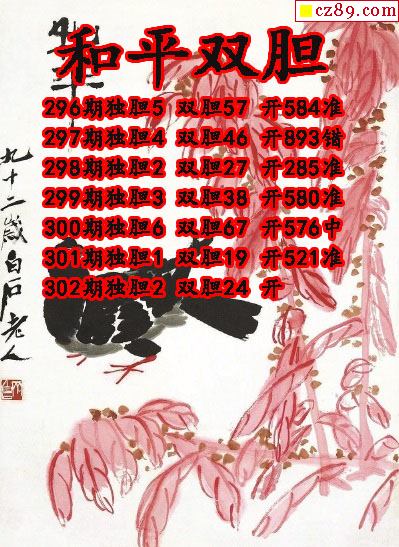 cz89.com
和平双胆
296期独胆5 双胆57 开584准
297期独胆4 双胆46 开893错
298期独胆2 双胆27 开285准
299期独胆3 双胆38 开580准
300期独胆6 双胆67 开576中
301期独胆1 双胆19 开521准
302期独胆2 双胆24 开
九十二岁白石老人